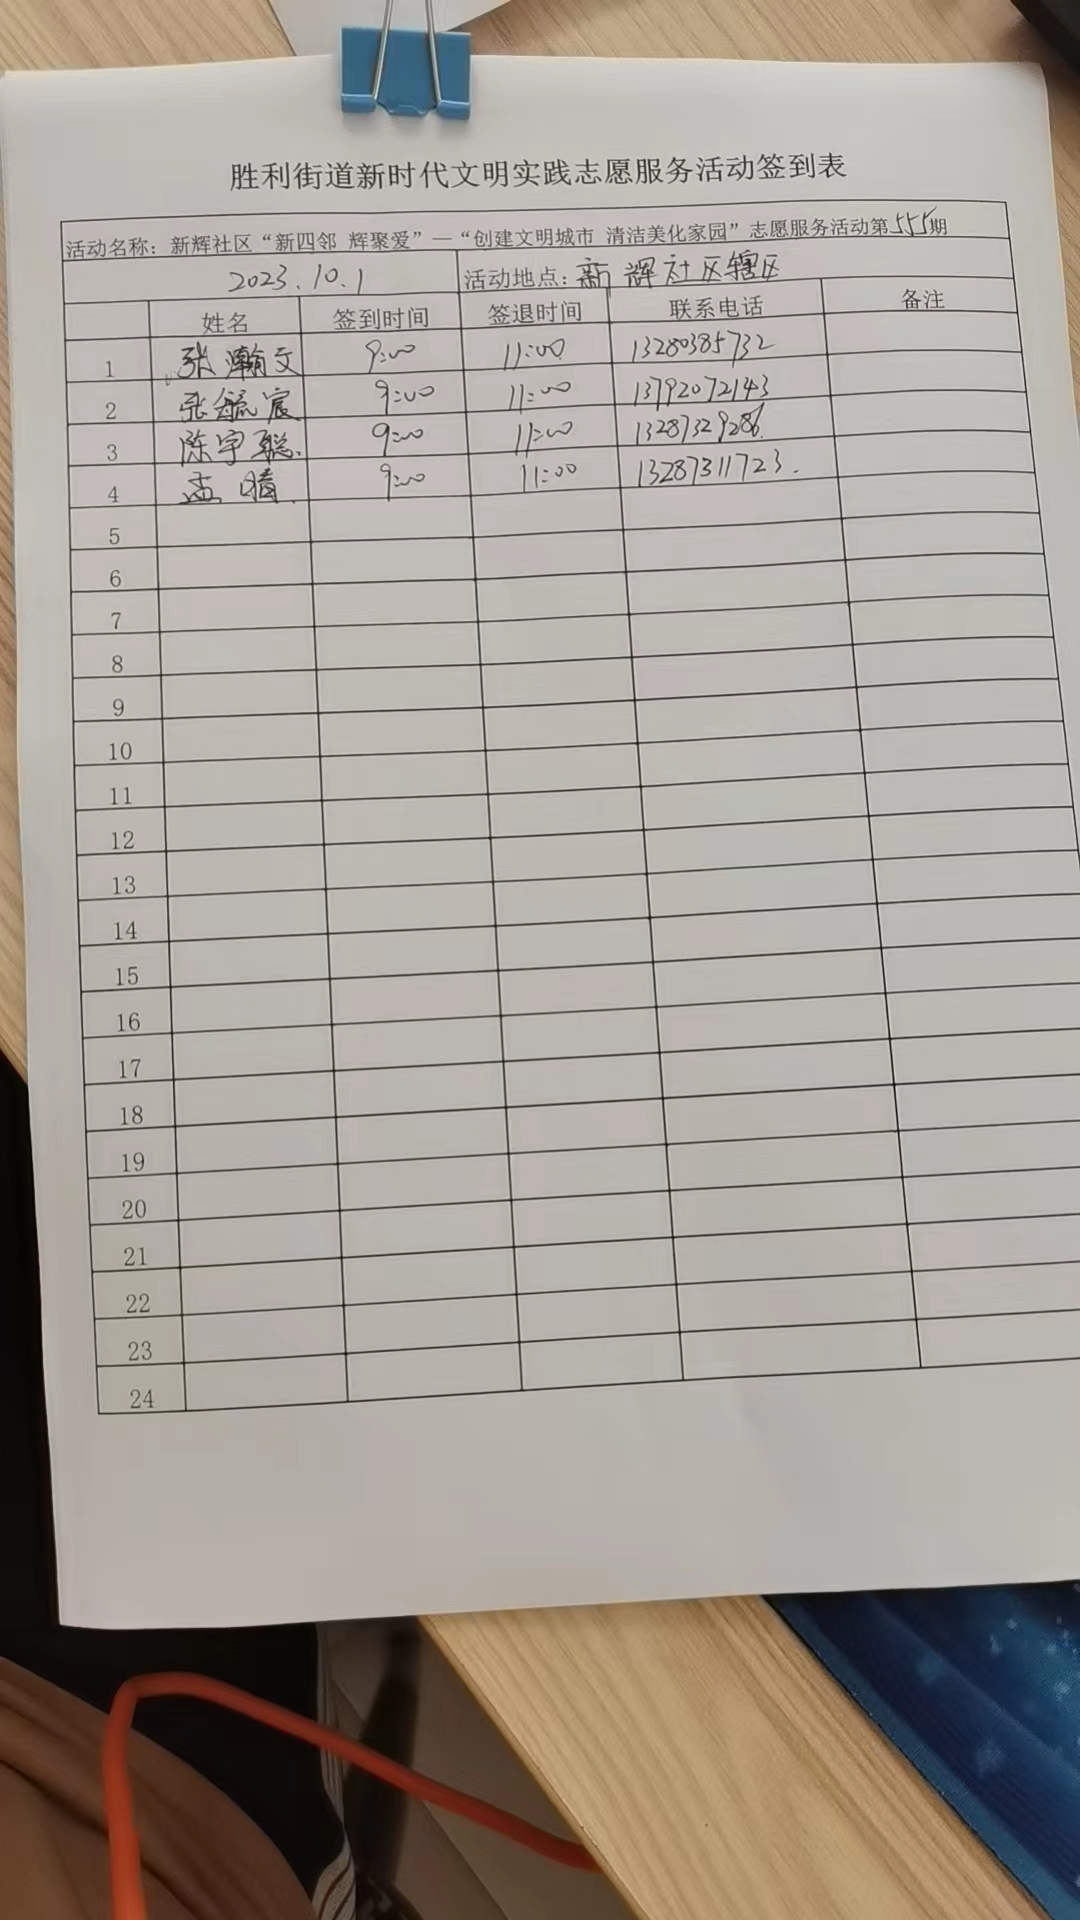 胜利街道新时代文明实践志愿服务活动签到表
活动名称：新辉社区“新四邻 辉聚爱”—“创建文明城市 清洁美化家园”志愿服务活动第555期
2023.10.1 活动地点：新辉社区辖区
姓名 签到时间 签退时间 联系电话 备注
1 张瀚文 9:00 11:00 13280385732
2 张毓宸 9:00 11:00 13792072143
3 陈宇聪 9:00 11:00 13287329286
4 孟晴 9:00 11:00 13287311723.
5
6
7
8
9
10
11
12
13
14
15
16
17
18
19
20
21
22
23
24